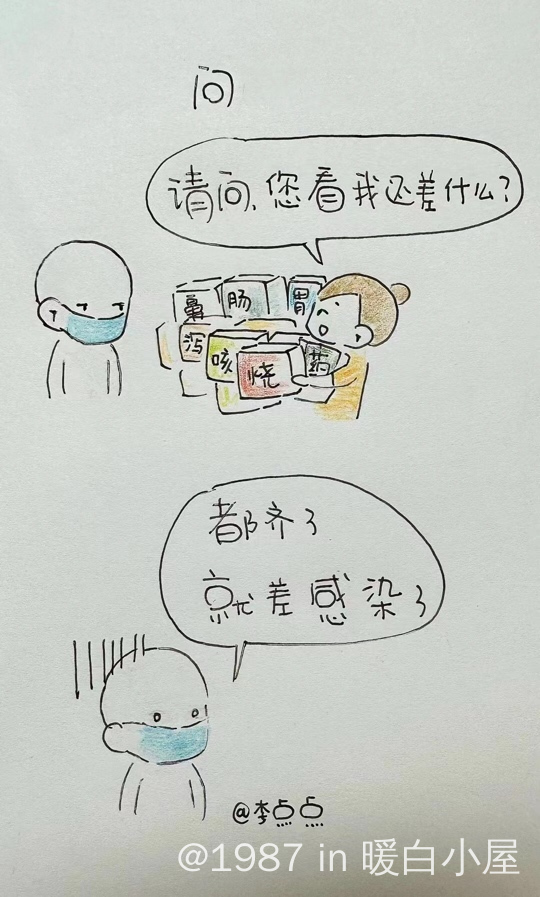 问
请问,您看我还差什么?
鼻 肠 胃
泻 咳 烧 药
都齐了
就差感染了
@李点点
@1987 in 暖白小屋